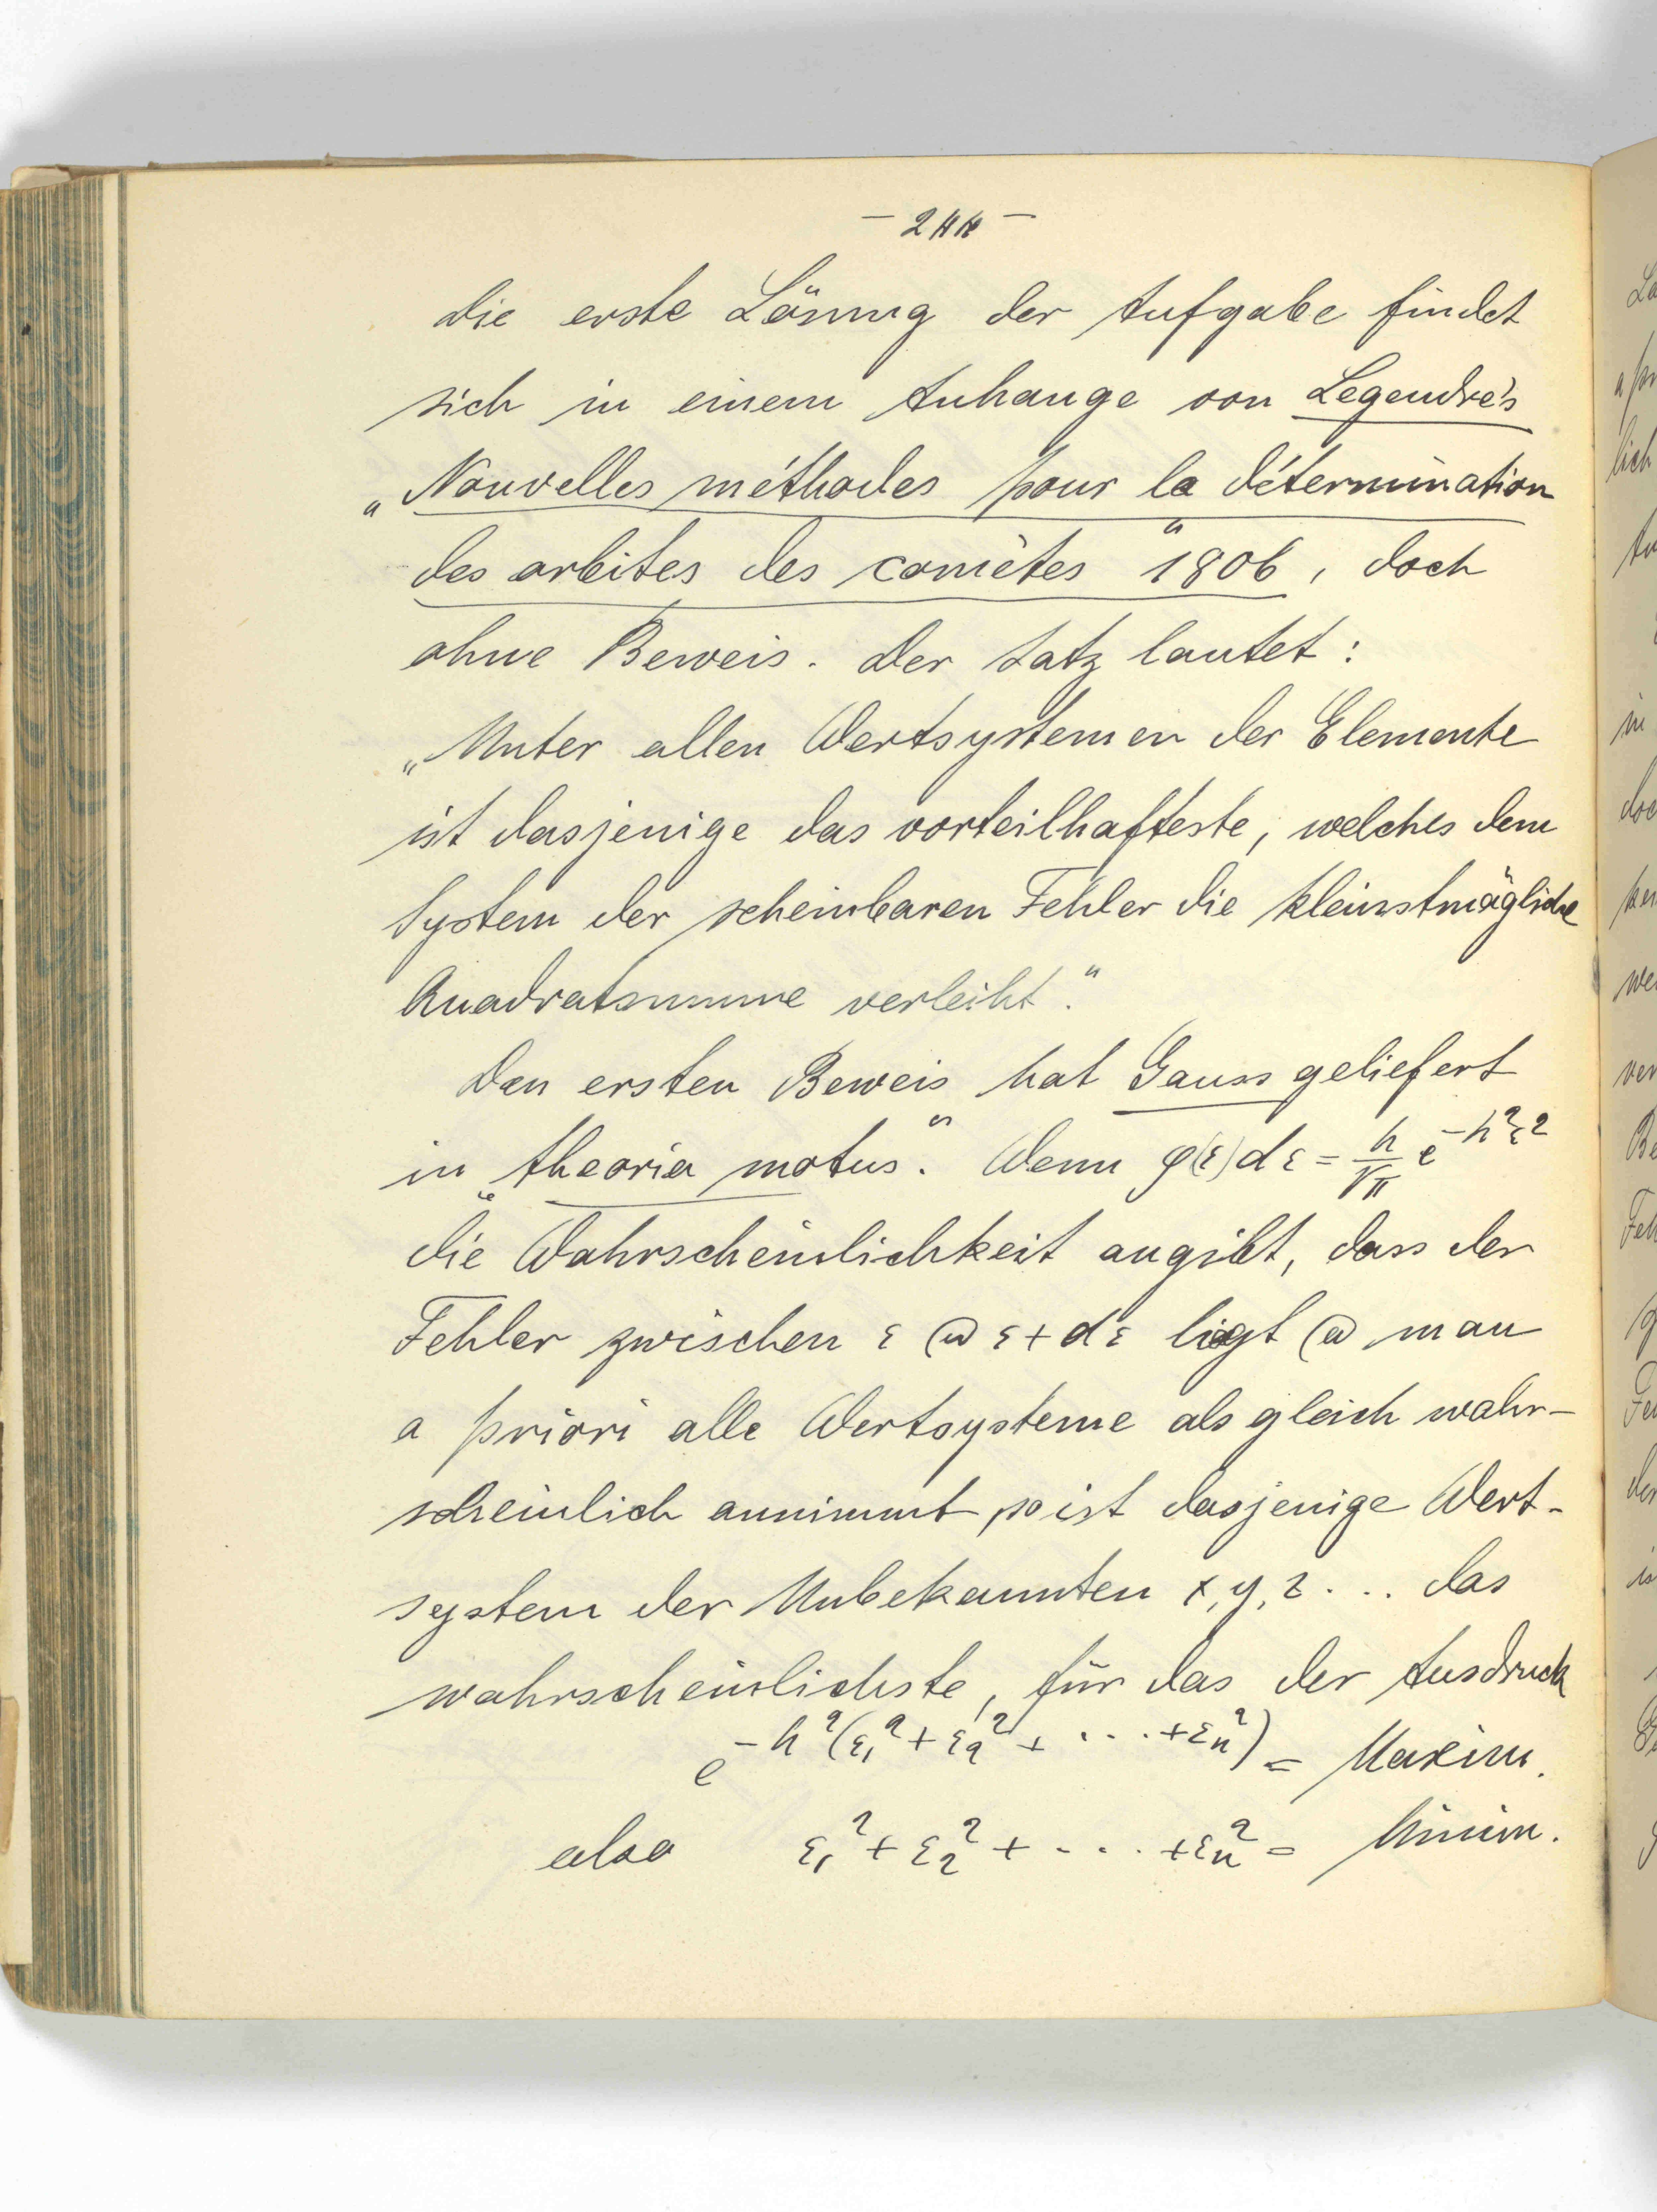 - 244 -
Die erste Lösung der Aufgabe findet
sich in einem Anhange von Legendre's
„Nouvelles méthodes pour la détermination
des orbites des comètes“ 1806, doch
ohne Beweis. Der Satz lautet:
„Unter allen Wertsystemen der Elemente
ist dasjenige das vorteilhafteste, welches dem
System der scheinbaren Fehler die kleinstmögliche
Quadratsumme verleiht.“
Den ersten Beweis hat Gauss geliefert
in „theoria motus“. Wenn φ(ε)dε = h/√π e^{-h²ε²}
die Wahrscheinlichkeit angibt, dass der
Fehler zwischen ε @ ε+dε liegt @ man
a priori alle Wertsysteme als gleich wahr-
scheinlich annimmt, so ist dasjenige Wert-
system der Unbekannten x, y, z ... das
wahrscheinlichste, für das der Ausdruck
e^{-h²(ε₁²+ε₂²+ ... +εₙ²)} = Maxim.
also ε₁²+ε₂²+ ... +εₙ² = Minim.